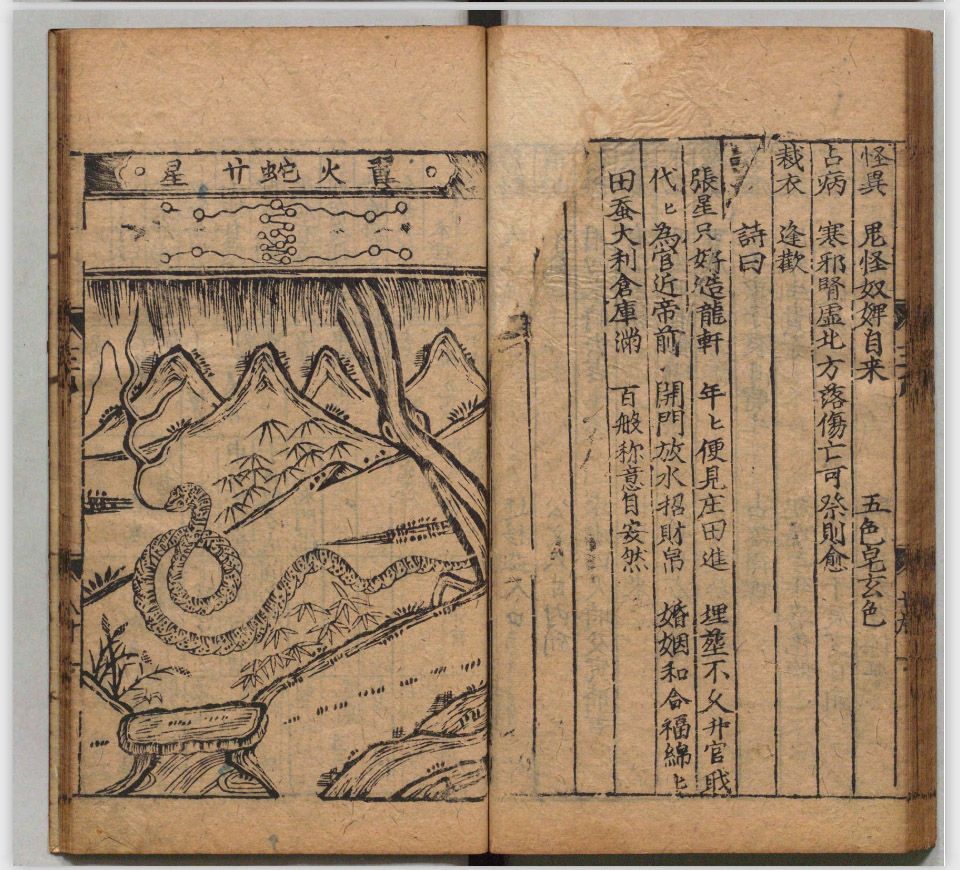 怪異 鬼怪奴婢自来 五色皂玄色
占病 寒邪腎虚北方落傷亡可祭則愈
裁衣 逢歡
詩曰
張星只好造龍軒 年〻便見庄田進 埋塟不乆升官戝
代〻為官近帝前 開門放水招財帛 婚姻和合福綿〻
田蚕大利倉庫满 百般称意自安然
翼火蛇廿星